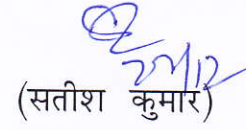 (सतीश कुमार)